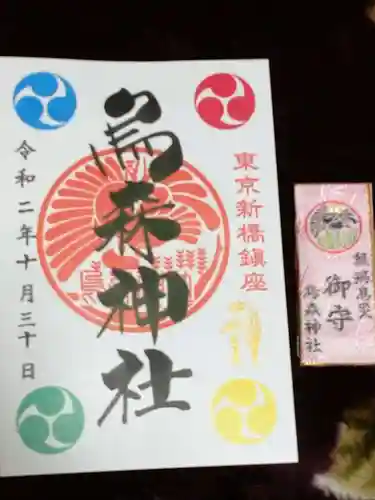 東京新橋鎮座
烏森神社
令和二年十月三十日
御守
烏森神社